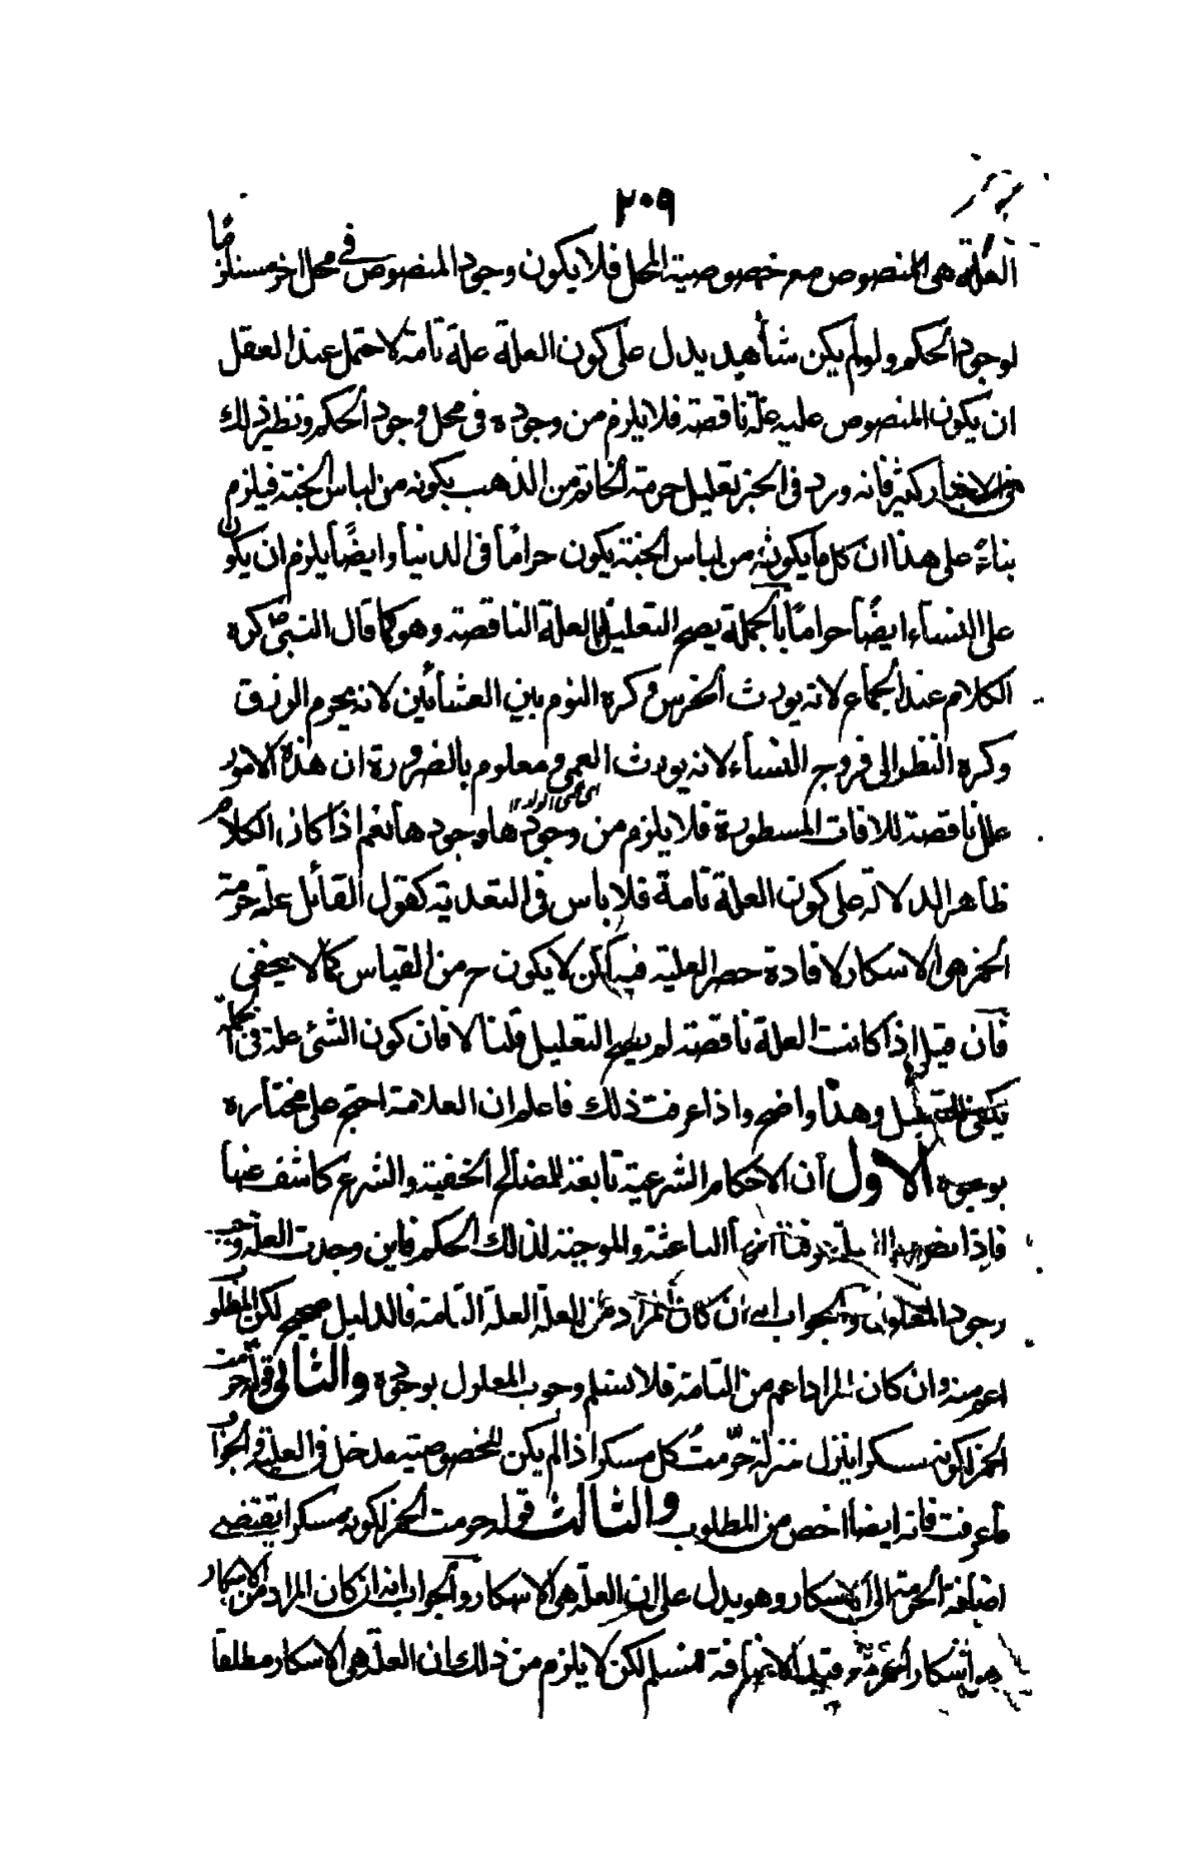 ٢٠٩
العلة هى المنصوص مع خصوصية المحل فلا يكون وجود المنصوص فى محل اخر مستلزمًا
لوجود الحكم ولو لم يكن شاهد يدل على كون العلة علة تامة لاحتمل عند العقل
ان يكون المنصوص عليه علة ناقصة فلا يلزم من وجوده فى محل وجود الحكم ونظير ذلك
فى الاخبار كثير فانه ورد فى الخبر تعليل حرمة الخاتم من الذهب بكونه من لباس الجنة فيلزم
بناءً على هذا ان كل ما يكون من لباس الجنة يكون حرامًا فى الدنيا وايضًا يلزم ان يكون
على النساء ايضًا حرامًا بالجملة يصح التعليل بالعلة الناقصة وهو كما قال النبى ص كره
الكلام عند الجماع لانه يورث الخرس وكره النوم بين العشائين لانه يحرم الرزق
وكره النظر الى فروج النساء لانه يورث العمى ومعلوم بالضرورة ان هذه الامور
اى عمى الولد ١٢
علل ناقصة للافات المسطورة فلا يلزم من وجودها وجودها نعم اذا كان الكلام
ظاهر الدلالة على كون العلة تامة فلا باس فى التعدية كقول القائل علة حرمة
الخمر هو الاسكار لافادة حصر العلية فيه لكن لا يكون ح من القياس كما لا يخفى
فان قيل اذا كانت العلة ناقصة لم يصح التعليل قلنا لا فان كون الشئ علة فى الجملة
يكفى للتعليل وهذا واضح واذا عرفت ذلك فاعلم ان العلامة احتج على مختاره
بوجوه الاول ان الاحكام الشرعية تابعة للمصالح الخفية والشرع كاشف عنها
فاذا نص على العلة عرفنا انها الباعثة والموجبة لذلك الحكم فاين وجدت العلة وجب
وجود المعلول والجواب انه ان كان المراد من العلة العلة التامة فالدليل صحيح لكن المطلوب
اعم منه وان كان المراد اعم من التامة فلا نسلم وجوب المعلول بوجوده والثانى قوله حرمت
الخمر لكونه مسكرا ينزل منزلة حرّمت كل مسكر اذ لم يكن للخصوصية مدخل فى العلية والجواب
ما عرفت فانه ايضا اخص من المطلوب والثالث قوله حرمت الخمر لكونه مسكرا يقتضى
اضافة الحرمة الى الاسكار وهو يدل على ان العلة هى الاسكار والجواب انه ان كان المراد من الاسكار
هو اسكار الخمر فقبل الاضافة مسلم لكن لا يلزم من ذلك ان العلة هى الاسكار مطلقا